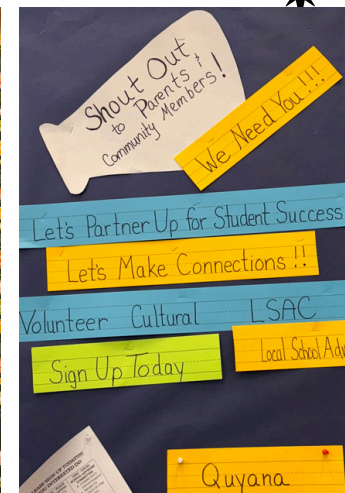 Shout Out
to Parents &
Community Members!
We Need You!!!
Let's Partner Up for Student Success
Let's Make Connections !!
Volunteer Cultural LSAC
Local School Adv
Sign Up Today
PLEASE SIGN UP TODAY!!!
Quyana